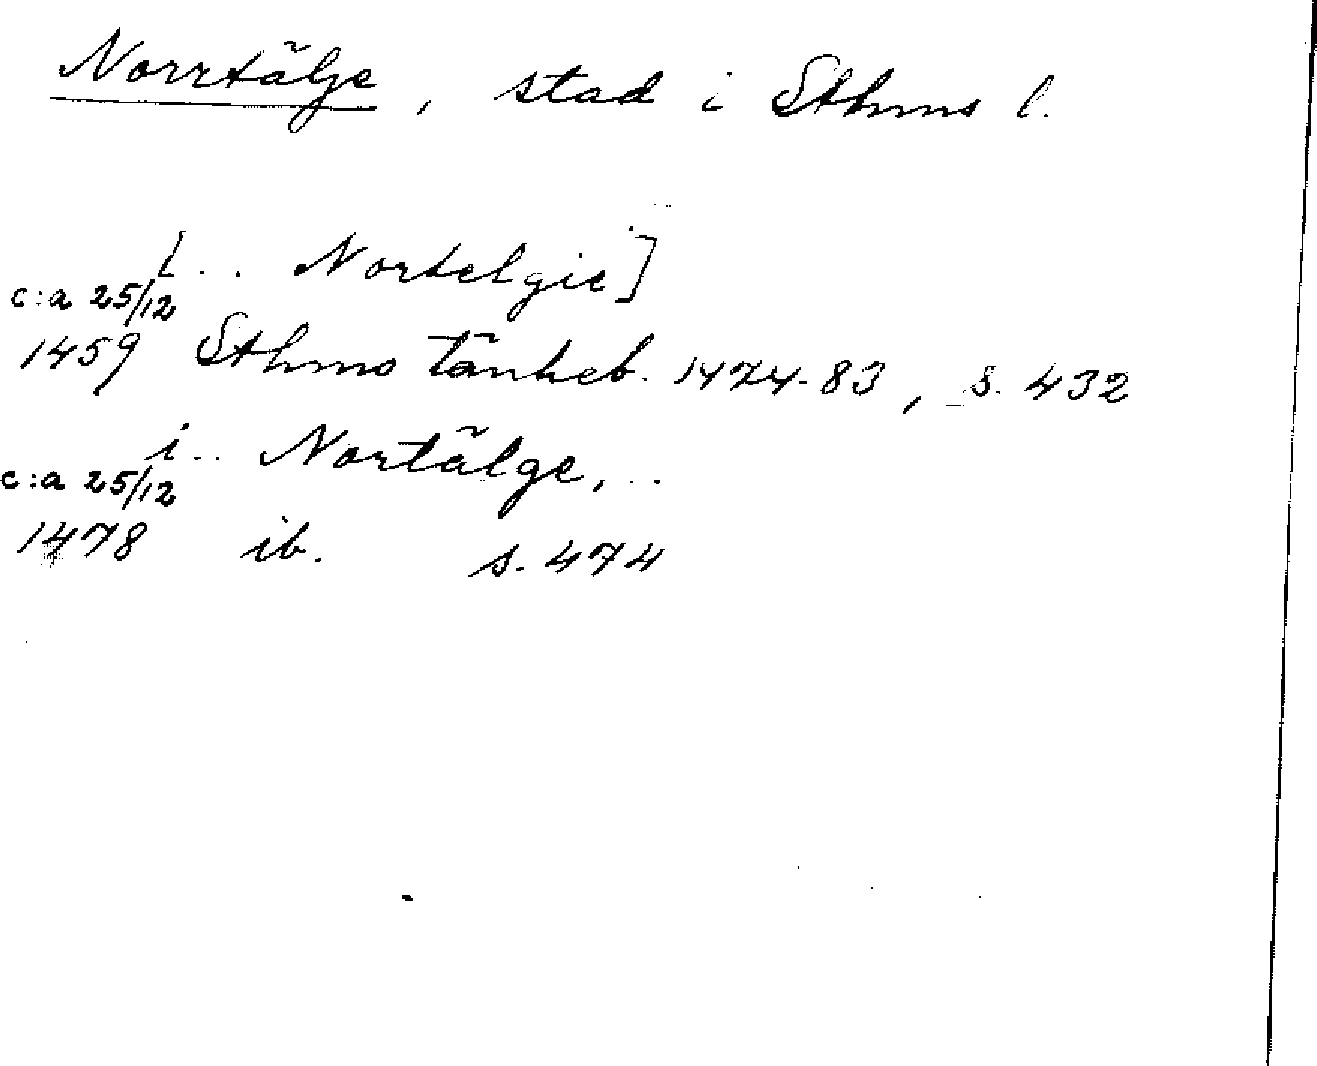 Norrtälje, stad i Sthms l.
[.. Nortelgie]
c:a 25/12
1459 Sthms tänkeb. 1474-83, s. 432
i .. Nortälge, ..
c:a 25/12
1478 ib. s. 474